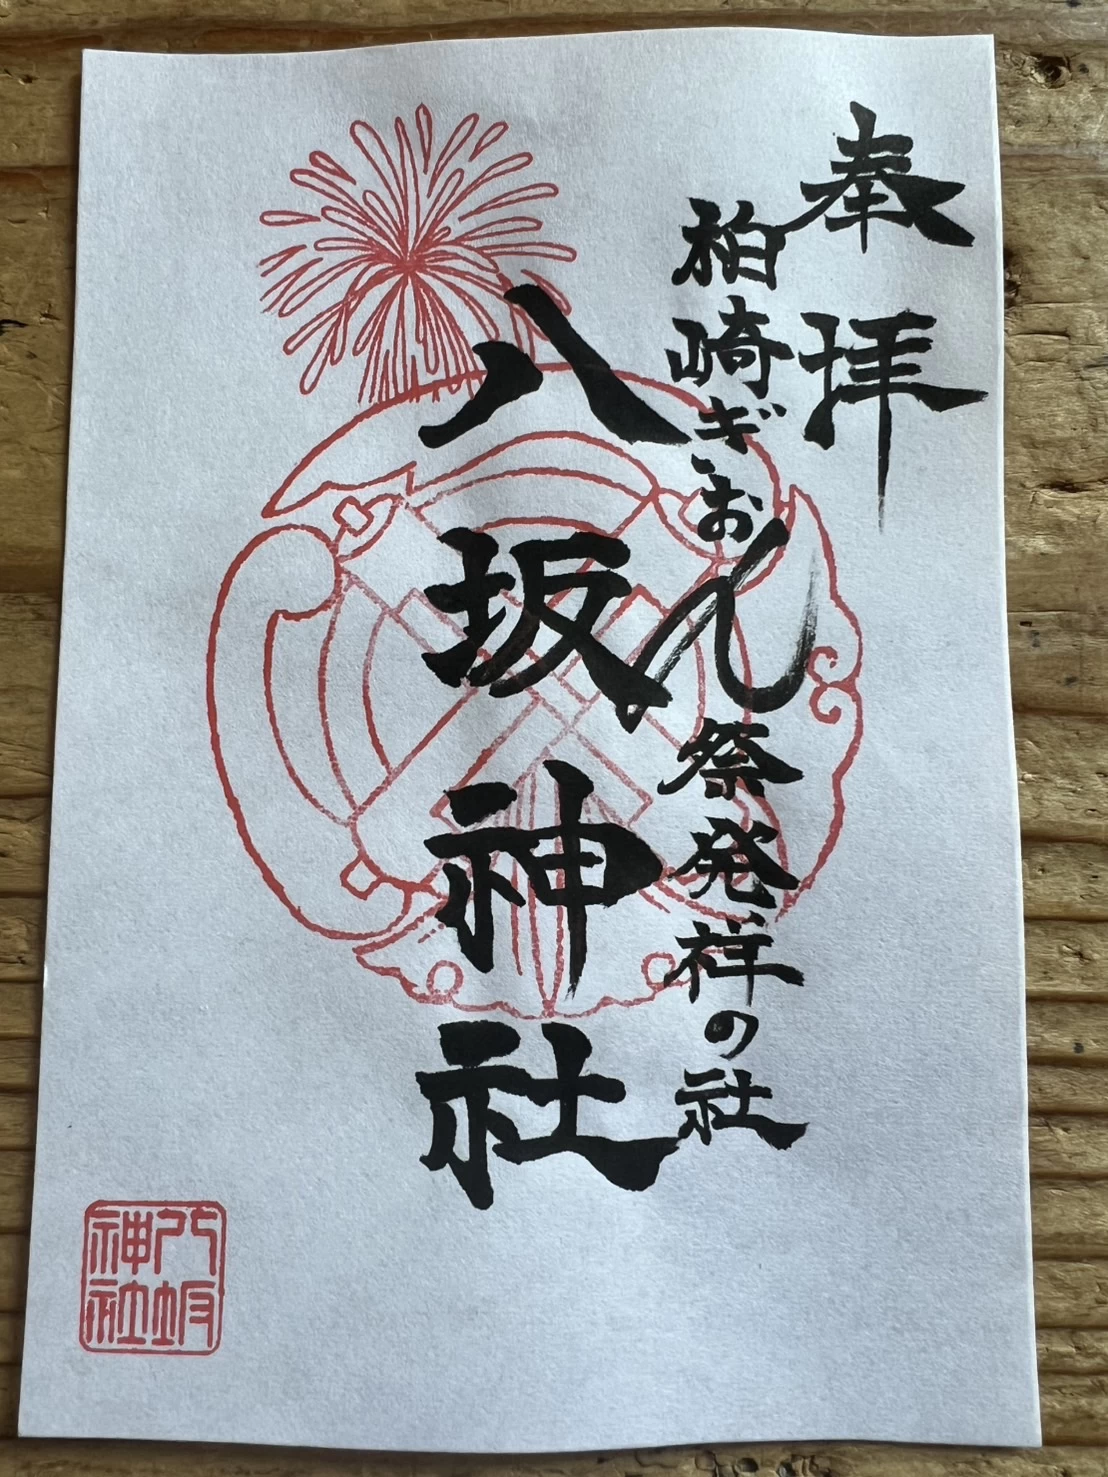 奉拝
柏崎ぎおん祭発祥の社
八坂神社
八坂神社